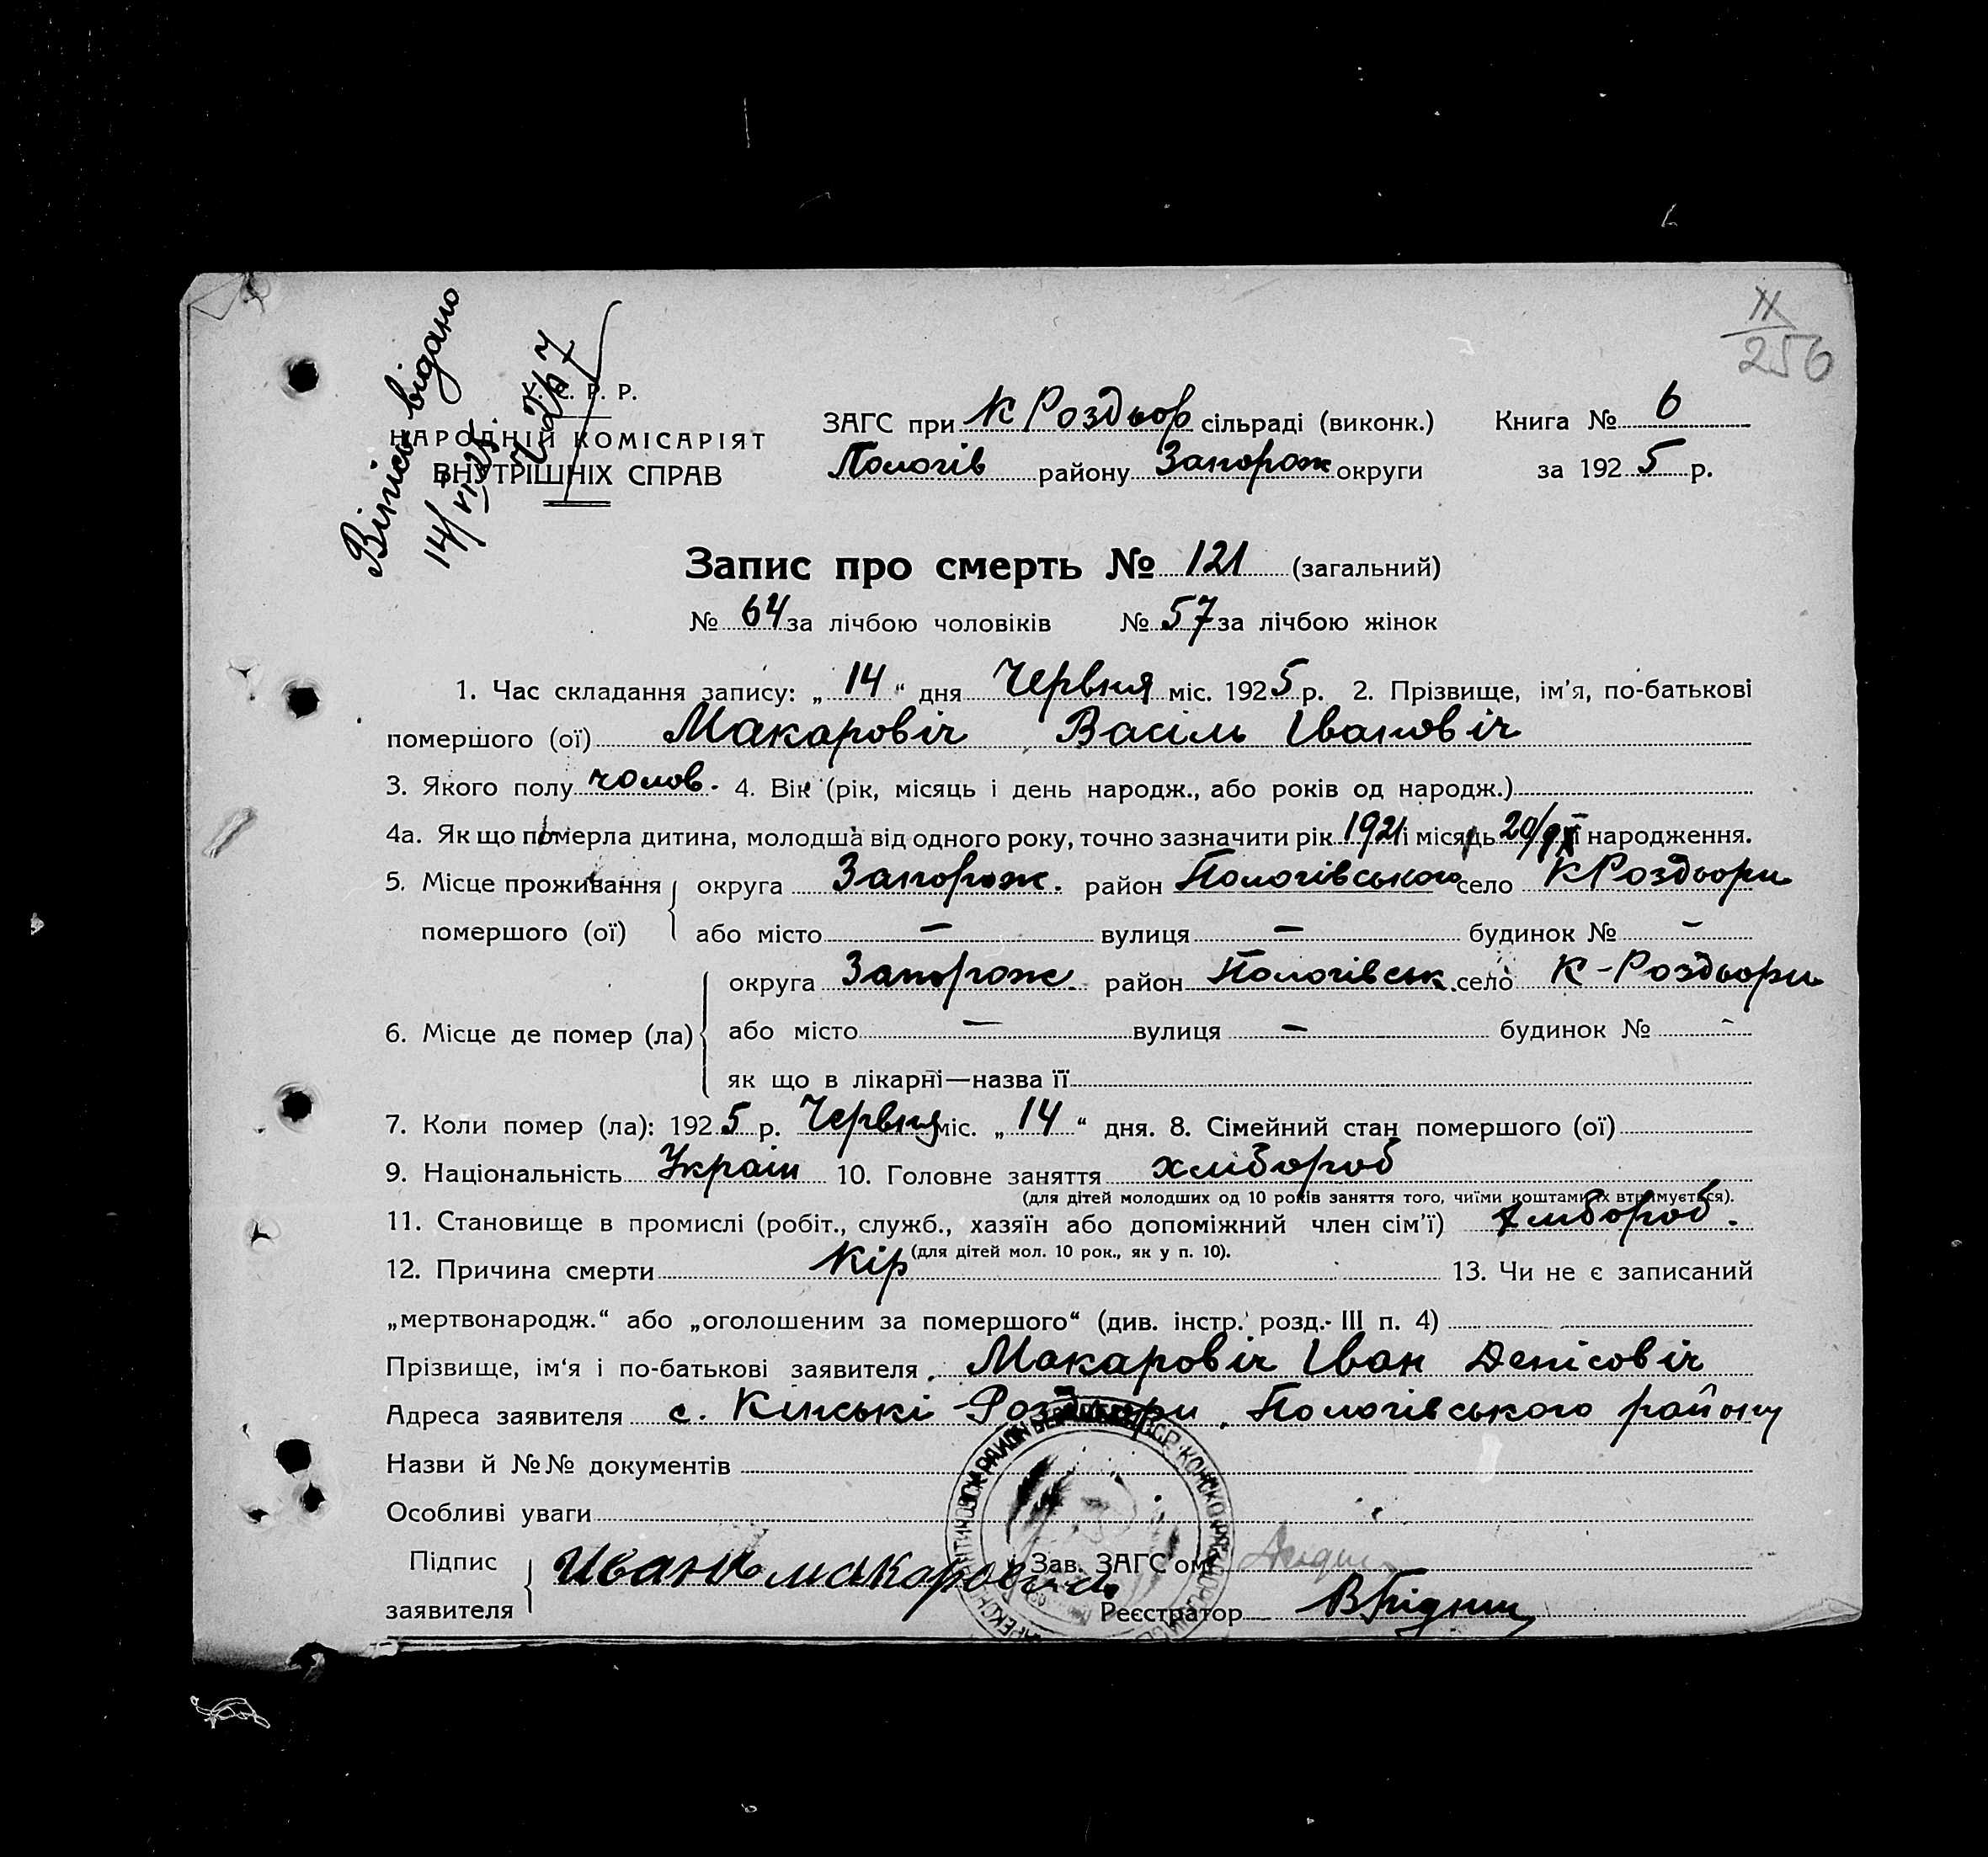 11
256
Вiпiсь вiдано
14/VI 25
У. С. Р. Р.
НАРОДНІЙ КОМІСАРІЯТ
ВНУТРІШНІХ СПРАВ
ЗАГС при К Роздьор сільраді (виконк.) Книга № 6
Пологів району Запорож округи за 1925 р.
Запис про смерть № 121 (загальний)
№ 64 за лічбою чоловіків № 57 за лічбою жінок
1. Час складання запису: „14“ дня Червня міс. 1925 р. 2. Прізвище, ім'я, по-батькові
помершого (ої) Макаровіч Васіль Івановіч
3. Якого полу чолов. 4. Вік (рік, місяць і день народж., або років од народж.)
4а. Як що померла дитина, молодша від одного року, точно зазначити рік 1921 і місяць 20/ народження.
5. Місце проживання помершого (ої) округа Запорож. район Пологівського село К Роздьори
або місто — вулиця — будинок № —
6. Місце де помер (ла) округа Запорож район Пологівськ. село К-Роздьори
або місто — вулиця — будинок № -
як що в лікарні—назва її
7. Коли помер (ла): 1925 р. Червня міс. „14“ дня. 8. Сімейний стан помершого (ої)
9. Національність Украін 10. Головне заняття хлібороб
(для дітей молодших од 10 років заняття того, чиїми коштами їх втримується).
11. Становище в промислі (робіт., служб., хазяїн або допоміжний член сім'ї) хлібороб.
(для дітей мол. 10 рок., як у п. 10).
12. Причина смерти Кір 13. Чи не є записаний
„мертвонародж.“ або „оголошеним за помершого“ (див. інстр. розд. III п. 4)
Прізвище, ім'я і по-батькові заявителя Макаровіч Іван Денісовіч
Адреса заявителя с. Кінські Роздори, Пологівського району
Назви й №№ документів
Особливі уваги
Підпис заявителя Иванъ макарович. Зав. ЗАГС'ом
Реєстратор